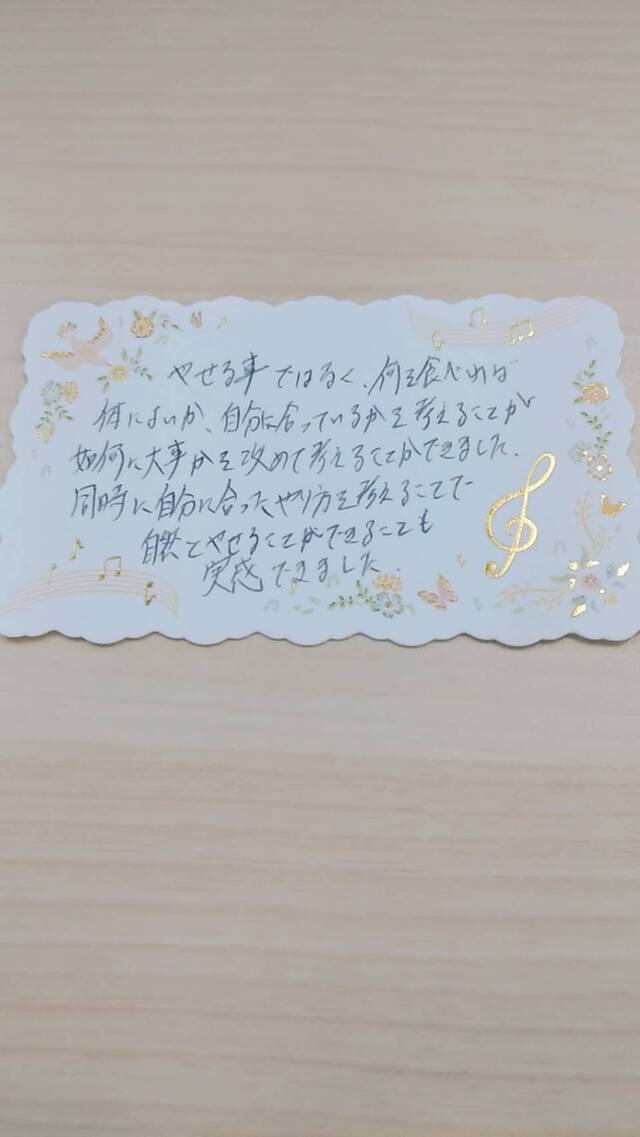 やせる事ではなく、何を食べれば
体によいか、自分に合っているかを考えることが
如何に大事かを改めて考えることができました.
同時に自分に合ったやり方を考えることで
自然とやせることができることも
実感できました.